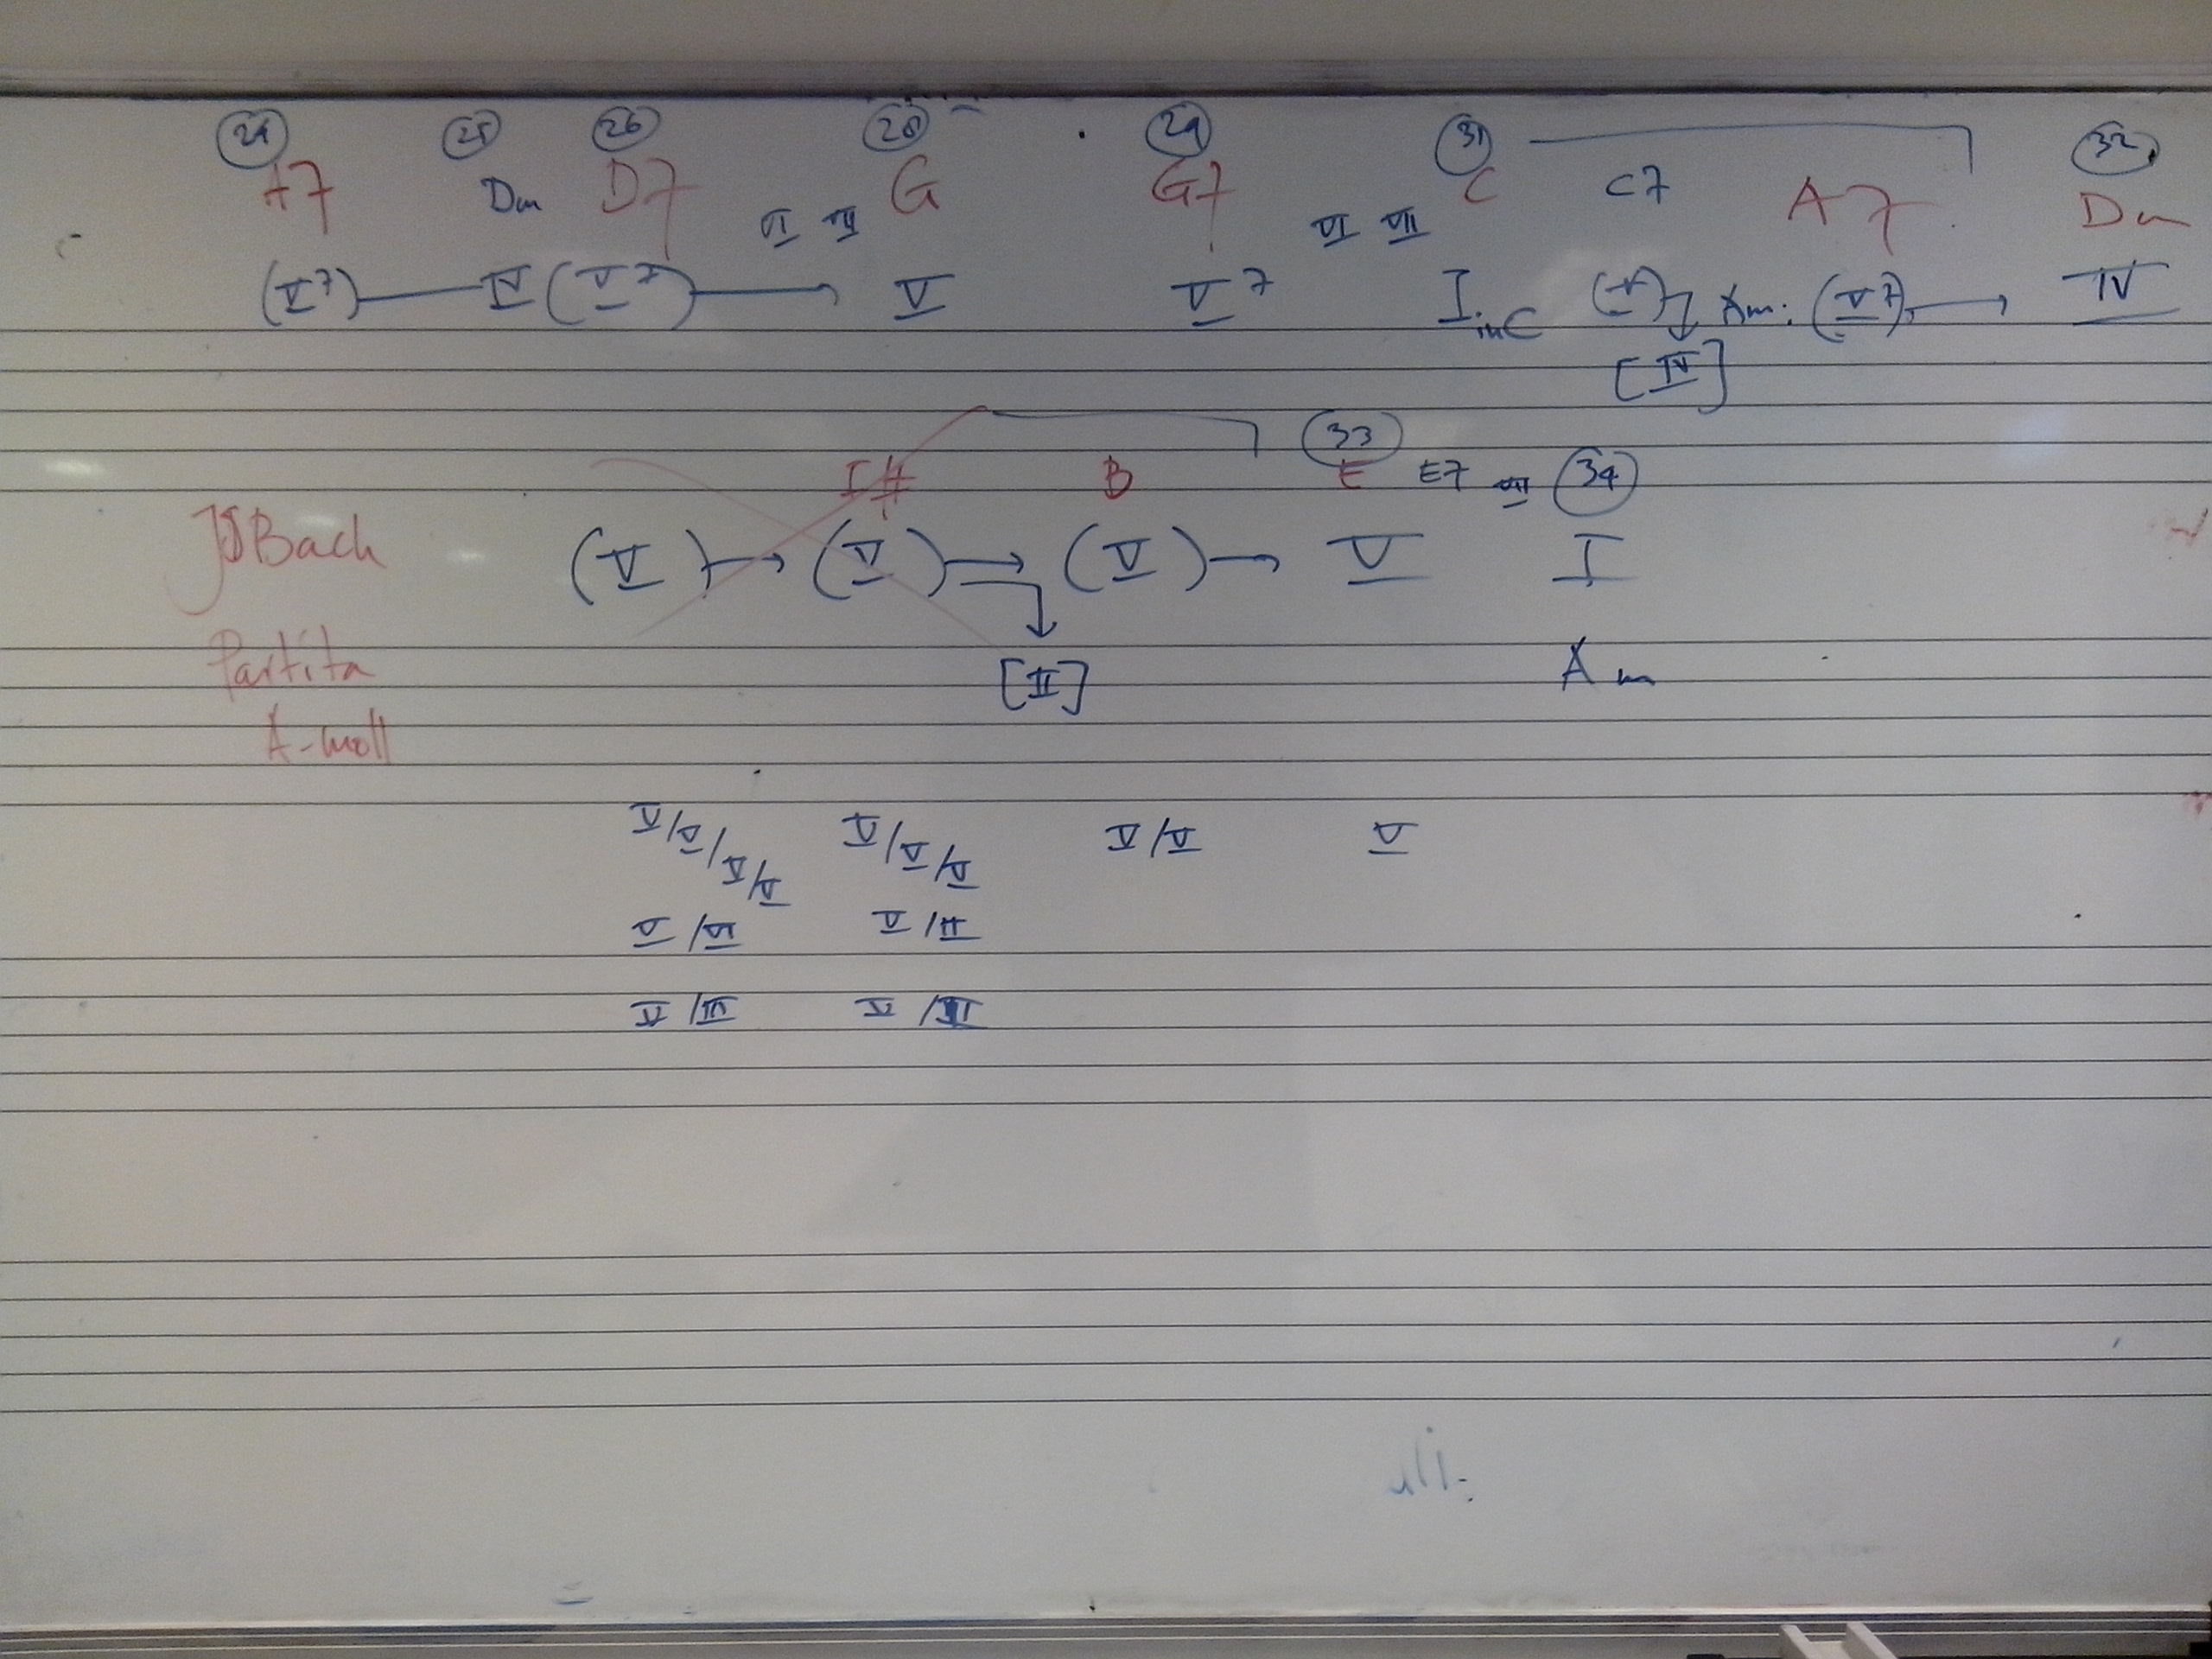 24 25 26 28 29 31 32
A7 Dm D7 G G7 C C7 A7 Dm
VI VII VI VII
(V7) IV (V7) → V V7 I in C (V) Am: (V7) → IV
[IV]
33
I# B E E7 VII 34
JSBach (V) → (V) → (V) → V I
Partita [II] Am
A-moll
V/V/V/V V/V/V V/V V
V/VI V/II
V/III V/VI